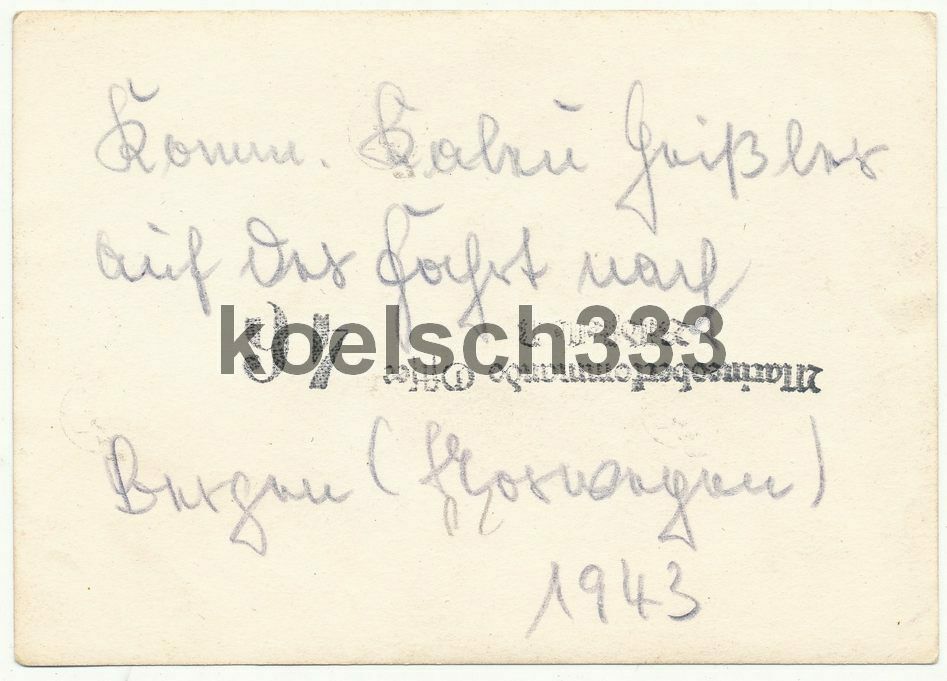 Komm. Kaleu Geißler
auf der Fahrt nach
koelsch333
Marineoberkommando Ostsee
Bergen (Norwegen)
1943